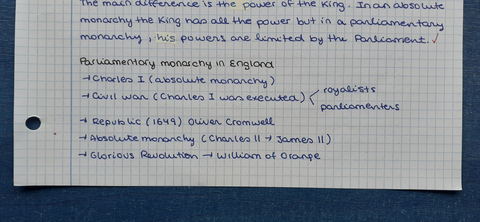 The main difference is the power of the King. In an absolute
monarchy the King has all the power but in a parliamentary
monarchy, his powers are limited by the Parliament. ✓
Parliamentary monarchy in England
→ Charles I (absolute monarchy)
→ Civil war (Charles I was executed) royalists
parliamenters
→ Republic (1649) Oliver Cromwell
→ Absolute monarchy (Charles II → James II)
→ Glorious Revolution → William of Orange